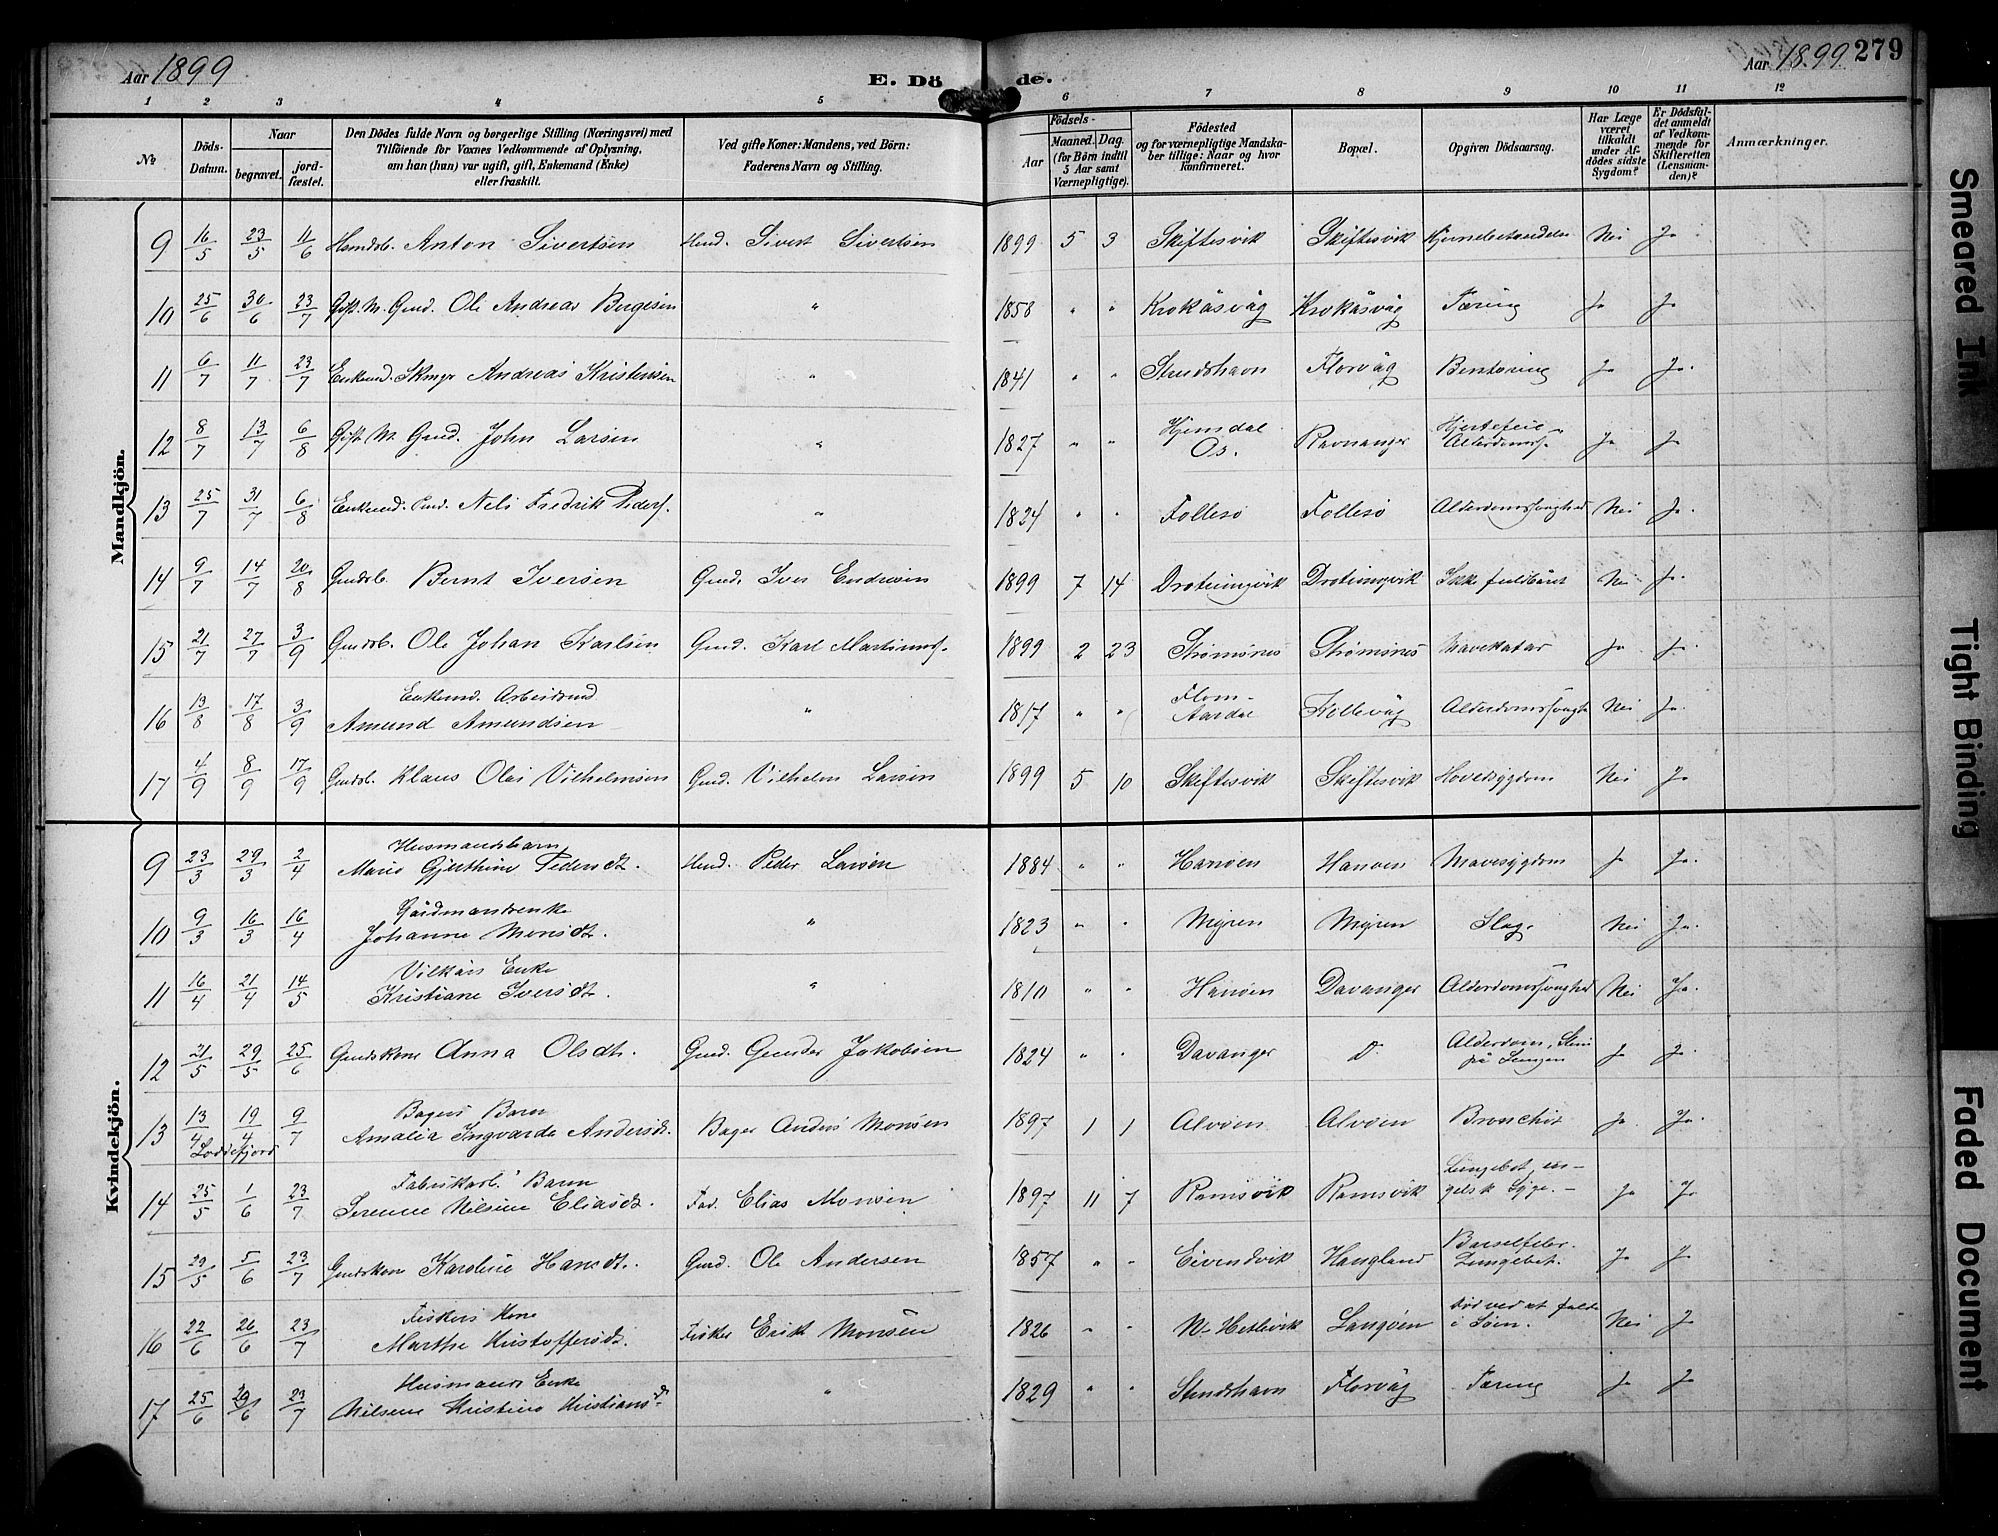 Aar 1899
E. Dö de.
Aar 1899. 279
1 2 3 4 5 6 7 8 9 10 11 12
No
Döds-Datum.
Naar
begravet.
jord-fæstet.
Den Dödes fulde Navn og borgerlige Stilling (Næringsvei) med
Tilföiende for Voxnes Vedkommende af Oplysning,
om han (hun) var ugift, gift, Enkemand (Enke)
eller fraskilt.
Ved gifte Koner: Mandens, ved Börn:
Faderens Navn og Stilling.
Födsels-
Aar
Maaned. Dag.
(for Börn indtil
5 Aar samt
Værnepligtige).
Födested
og for værnepligtige Mandska-
ber tillige: Naar og hvor
konfirmeret.
Bopæl.
Opgiven Dödsaarsag.
Har Læge
været
tilkaldt
under Af-
dödes sidste
Sygdom?
Er Dödsfal-
det anmeldt
af Vedkom-
mende for
Skifteretten
(Lensman-
den)?
Anmærkninger.
Mandkjön.
9 16/5 23/5 11/6 Anton Sivertsen Hmd. Sivert Sivertsen 1899 5 3 Skiftesvik Skiftesvik Hjernebetændelse Nei Ja
10 25/6 30/6 23/7 Gift M. Gmd. Ole Andreas Birgesen " 1858 " " Krokåsvåg Krokåsvåg Tæring Ja Ja
11 6/7 11/7 23/7 Enkemd. Andreas Kristensen " 1841 " " Strudshavn Florvåg Bentæring Ja Ja.
12 8/7 13/7 6/8 Gift M. Gmd. John Larsen " 1827 " " Hjemdal Os. Ravnanger Hjertefeil Alderdomss. Ja Ja
13 25/7 31/7 6/8 Enkemd. Gmd. Nels Fredrik Peders. " 1824 " " Follesø Follesø Alderdomssvaghed Nei Ja.
14 9/7 14/7 20/8 Gmdsb. Bernt Iversen Gmd. Iver Endresen 1899 7 14 Drotningvik Drotningvik Ikke fuldbåret Nei Ja.
15 21/7 27/7 3/9 Gmdsb. Ole Johan Karlsen Gmd. Karl Martinus. 1899 2 23 Strømsnes Strømsnes Mavekatar Ja Ja.
16 13/8 17/8 3/9 Enkemd. Arbeidsmd Amund Amundsen " 1817 " " Flom-Aardal Follevåg Alderdomssvagh Nei Ja.
17 4/9 8/9 17/9 Gmdsb. Klaus Olai Vilhelmsen Gmd. Vilhelm Larsen 1899 5 10 Skiftesvik Skiftesvik Hovedsygdom Nei Ja
Kvindekjön.
9 23/3 29/3 2/4 Husmandsbarn Marie Gjerthine Pedersdt. Hmd. Peder Larsen 1884 " " Hanøen Hanøen Mavesygdom Ja Ja.
10 9/3 16/3 16/4 Gårdmandsenke Johanne Monsdt. " 1823 " " Myren Myren Slag. Nei Ja.
11 16/4 21/4 14/5 Vilkårs Enke Kristiane Iversdt. " 1810 " " Hanøen Davanger Alderdomssvaghed Nei Ja.
12 21/5 29/5 25/6 Gmdskone Anna Olsdt. Gmd. Gunder Jakobsen 1824 " " Davanger D. Alderdom, Slim på Lungen Ja Ja.
13 13/4 19/4 9/7 Loddefjord Bagers Barn Amalia Ingvarda Andersdt. Bager Anders Monsen 1897 1 1 Alvøen Alvøen Bronchit Ja. Ja.
14 25/5 1/6 23/7 Fabrikarb. Barn Serene Nilsine Eliasdt. Fab. Elias Monsen 1897 11 7 Ramsvik Ramsvik Lungebet, en-gelsk Syge. Ja Ja
15 29/5 5/6 23/7 Gmdskone Karoline Hansdt. Gmd. Ole Andersen 1857 " " Eivendvik Haugland Barselfeber. Lungebet. Ja Ja
16 22/6 26/6 23/7 Fiskers Kone Marthe Kristoffersdt. Fisker Erik Monsen 1826 " " N. Hetlevik Langøen Død ved at falde i Søen. Nei Ja
17 25/6 29/6 23/7 Husmands Enke Nilsene Kristine Kristiansdt " 1829 " " Strudshavn Florvåg Tæring Ja Ja
Smeared Ink
Tight Binding
Faded Document